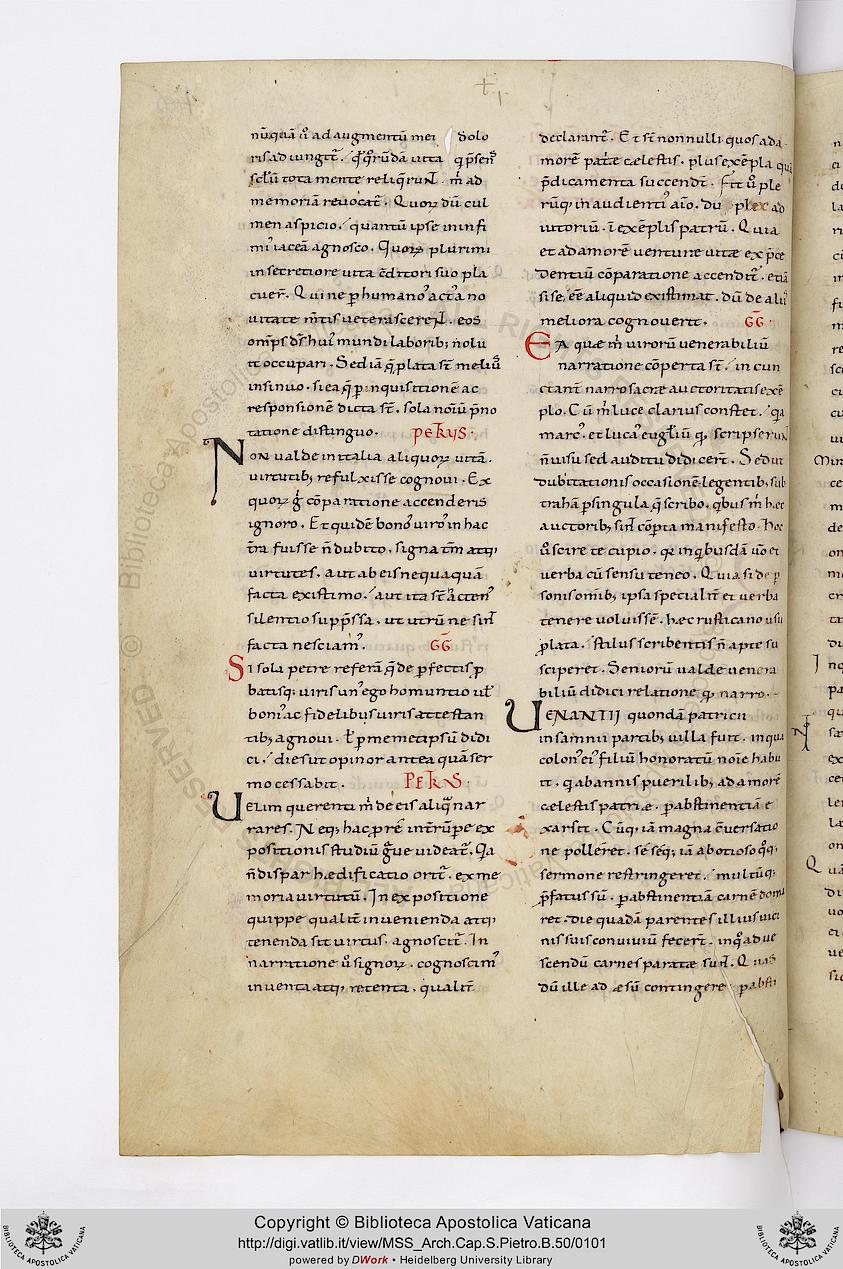 nūquā ū ad augmentū mei dolo
ris adiungit̄. q̄ quorūdā uita q̄ p̄senˀ
sclū tota mente reliqueruɴt. m̄ ad
memoriā reuocat̄. Quoꝝ dū cul
men aspicio. quantū ipse in infi
mis iaceā agnosco. Quoꝝ plurimi
in secretiore uita c̄ditori suo pla
cuer̄. Qui ne ꝑ humanoˢ actˢ a no
uitate mtīs ueterascereɴt. eos
omp̄s ds̄ huiˢ mundi laborib; nolu
it occupari. Sed iā q̄ plata st̄ meliꝰ
insinuo. si ea q̄ ꝑ inquisitionē ac
responsionē dicta st̄. sola noīū p̄no
tatione distinguo. PETRVS.
Non ualde in italia aliquoꝝ uitā.
uirtutib; refulxisse cognoui. Ex
quoꝝ g̊ cōparatione accenderis
ignoro. Et quidē bonoˢ uiroˢ in hac
tr̄a fuisse n̄ dubito. signa tm̄ atq;
uirtutes. aut ab eis nequaquā
facta existimo. aut ita st̄ actenˢ
silentio supp̄ssa. ut utrū ne sint̄
facta nesciamˢ. GḠ
Si sola petre referā q̄ de ꝑfectis ꝓ
batisq; uiris unˢ ego homuntio ul̄
boniˢ ac fidelibus uiris attestan
tib; agnoui. l̄ ꝑ memetipsū didi
ci. dies ut opinor antea quā ser
mo cessabit. PETRVS.
Uelim querenti m̄ de eis aliq̄ nar
rares. Neq; hac ꝓ rē int̄rūpe ex
positionis studiū g̊ue uideat̄. Q̄a
n̄ dispar hædificatio orit̄. ex me
moria uirtutū. In expositione
quippe qualit̄ inuenienda atq;
tenenda sit uirtus. agnoscit̄. In
narratione ū signoꝝ. cognoscimˢ
inuenta atq; retenta. qualit̄
declarant̄. Et st̄ nonnulli quos ad a
morē pat̄e cælestis. plus exēpla quā
p̄dicamenta succendt̄. Fit ū ple
rūq; in audientiˢ aīo. du plex ad
iutoriū. ī exēplis patrū. Quia
et ad amorē uenturæ uitæ ex p̄ce
dentiū cōparatione accendit̄. etiā
si se ēē aliquid existimat. dū de aliis
meliora cognouerit. GḠ.
Ea quæ m̄ uirorū uenerabiliū
narratione cōperta st̄. in cun
ctant̄ narro sacræ auctoritatis exē
plo. Cū m̄ luce clarius constet. q̄a
marcˢ. et lucaˢ eugl̄iū q̄ scripseruɴt
n̄ uisu sed auditu didicert̄. Sed ut
dubitationis occasionē legentib; sub
traham ꝑ singula q̄ scribo. q̄bus m̄ hæc
auctorib; sint̄ cōpta manifesto. Hoc
ū scire te cupio. q̄a in quibusdā
uerba cū sensu teneo. Quia si de ꝑ
sonis omīb; ipsa specialit̄ et uerba
tenere uoluissē. hæc rusticano usu
ꝓlata. stilus scribentis n̄ apte su
sciperet. Seniorū ualde uenera
biliū didici relatione q̄ narro.
UENANTII quondā patricii
in samnii partib; uilla fuit. in qua
colonˢ eiˢ filiū honoratū noīe habu
it. q̄ ab annis puerilib; ad amorē
cælestis patriæ. ꝑ abstinentiā e
xarsit. Cūq; iā magna c̄uersatio
ne polleret̄. sēseq; iā ab otioso q̄q;
sermone restringeret. multūq;
p̄fatus sū. ꝑ abstinentiā carnē domu
ret. die quadā parentes illius uici
nis suis conuiuiū fecert̄. in q̊ ad ue
scendū carnes paratæ suɴt. Quas
dū ille ad æsū contingere ꝑ absti
Copyright © Biblioteca Apostolica Vaticana
http://digi.vatlib.it/view/MSS_Arch.Cap.S.Pietro.B.50/0101
powered by DWork • Heidelberg University Library